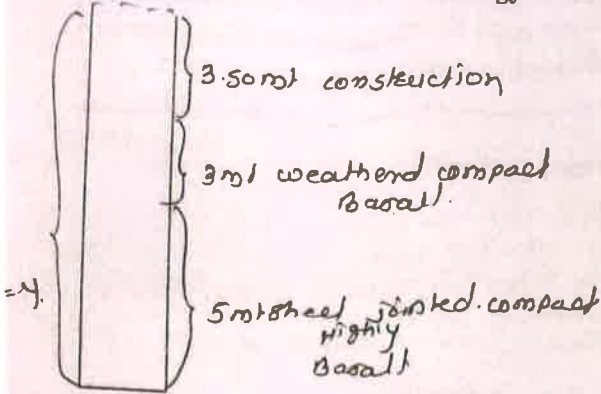 3.50mt construction
3mt weatherd compact
Basalt.
=4.
5mt sheet jointed. compact
Highly
Basalt